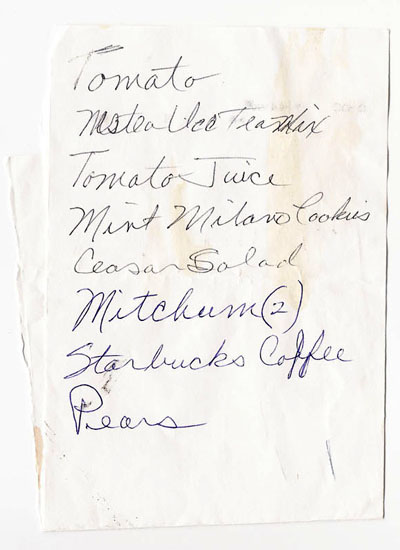 Tomato
Nestea Ice Tea Mix
Tomato Juice
Mint Milano Cookies
Ceasar Salad
Mitchum (2)
Starbucks Coffee
Pears